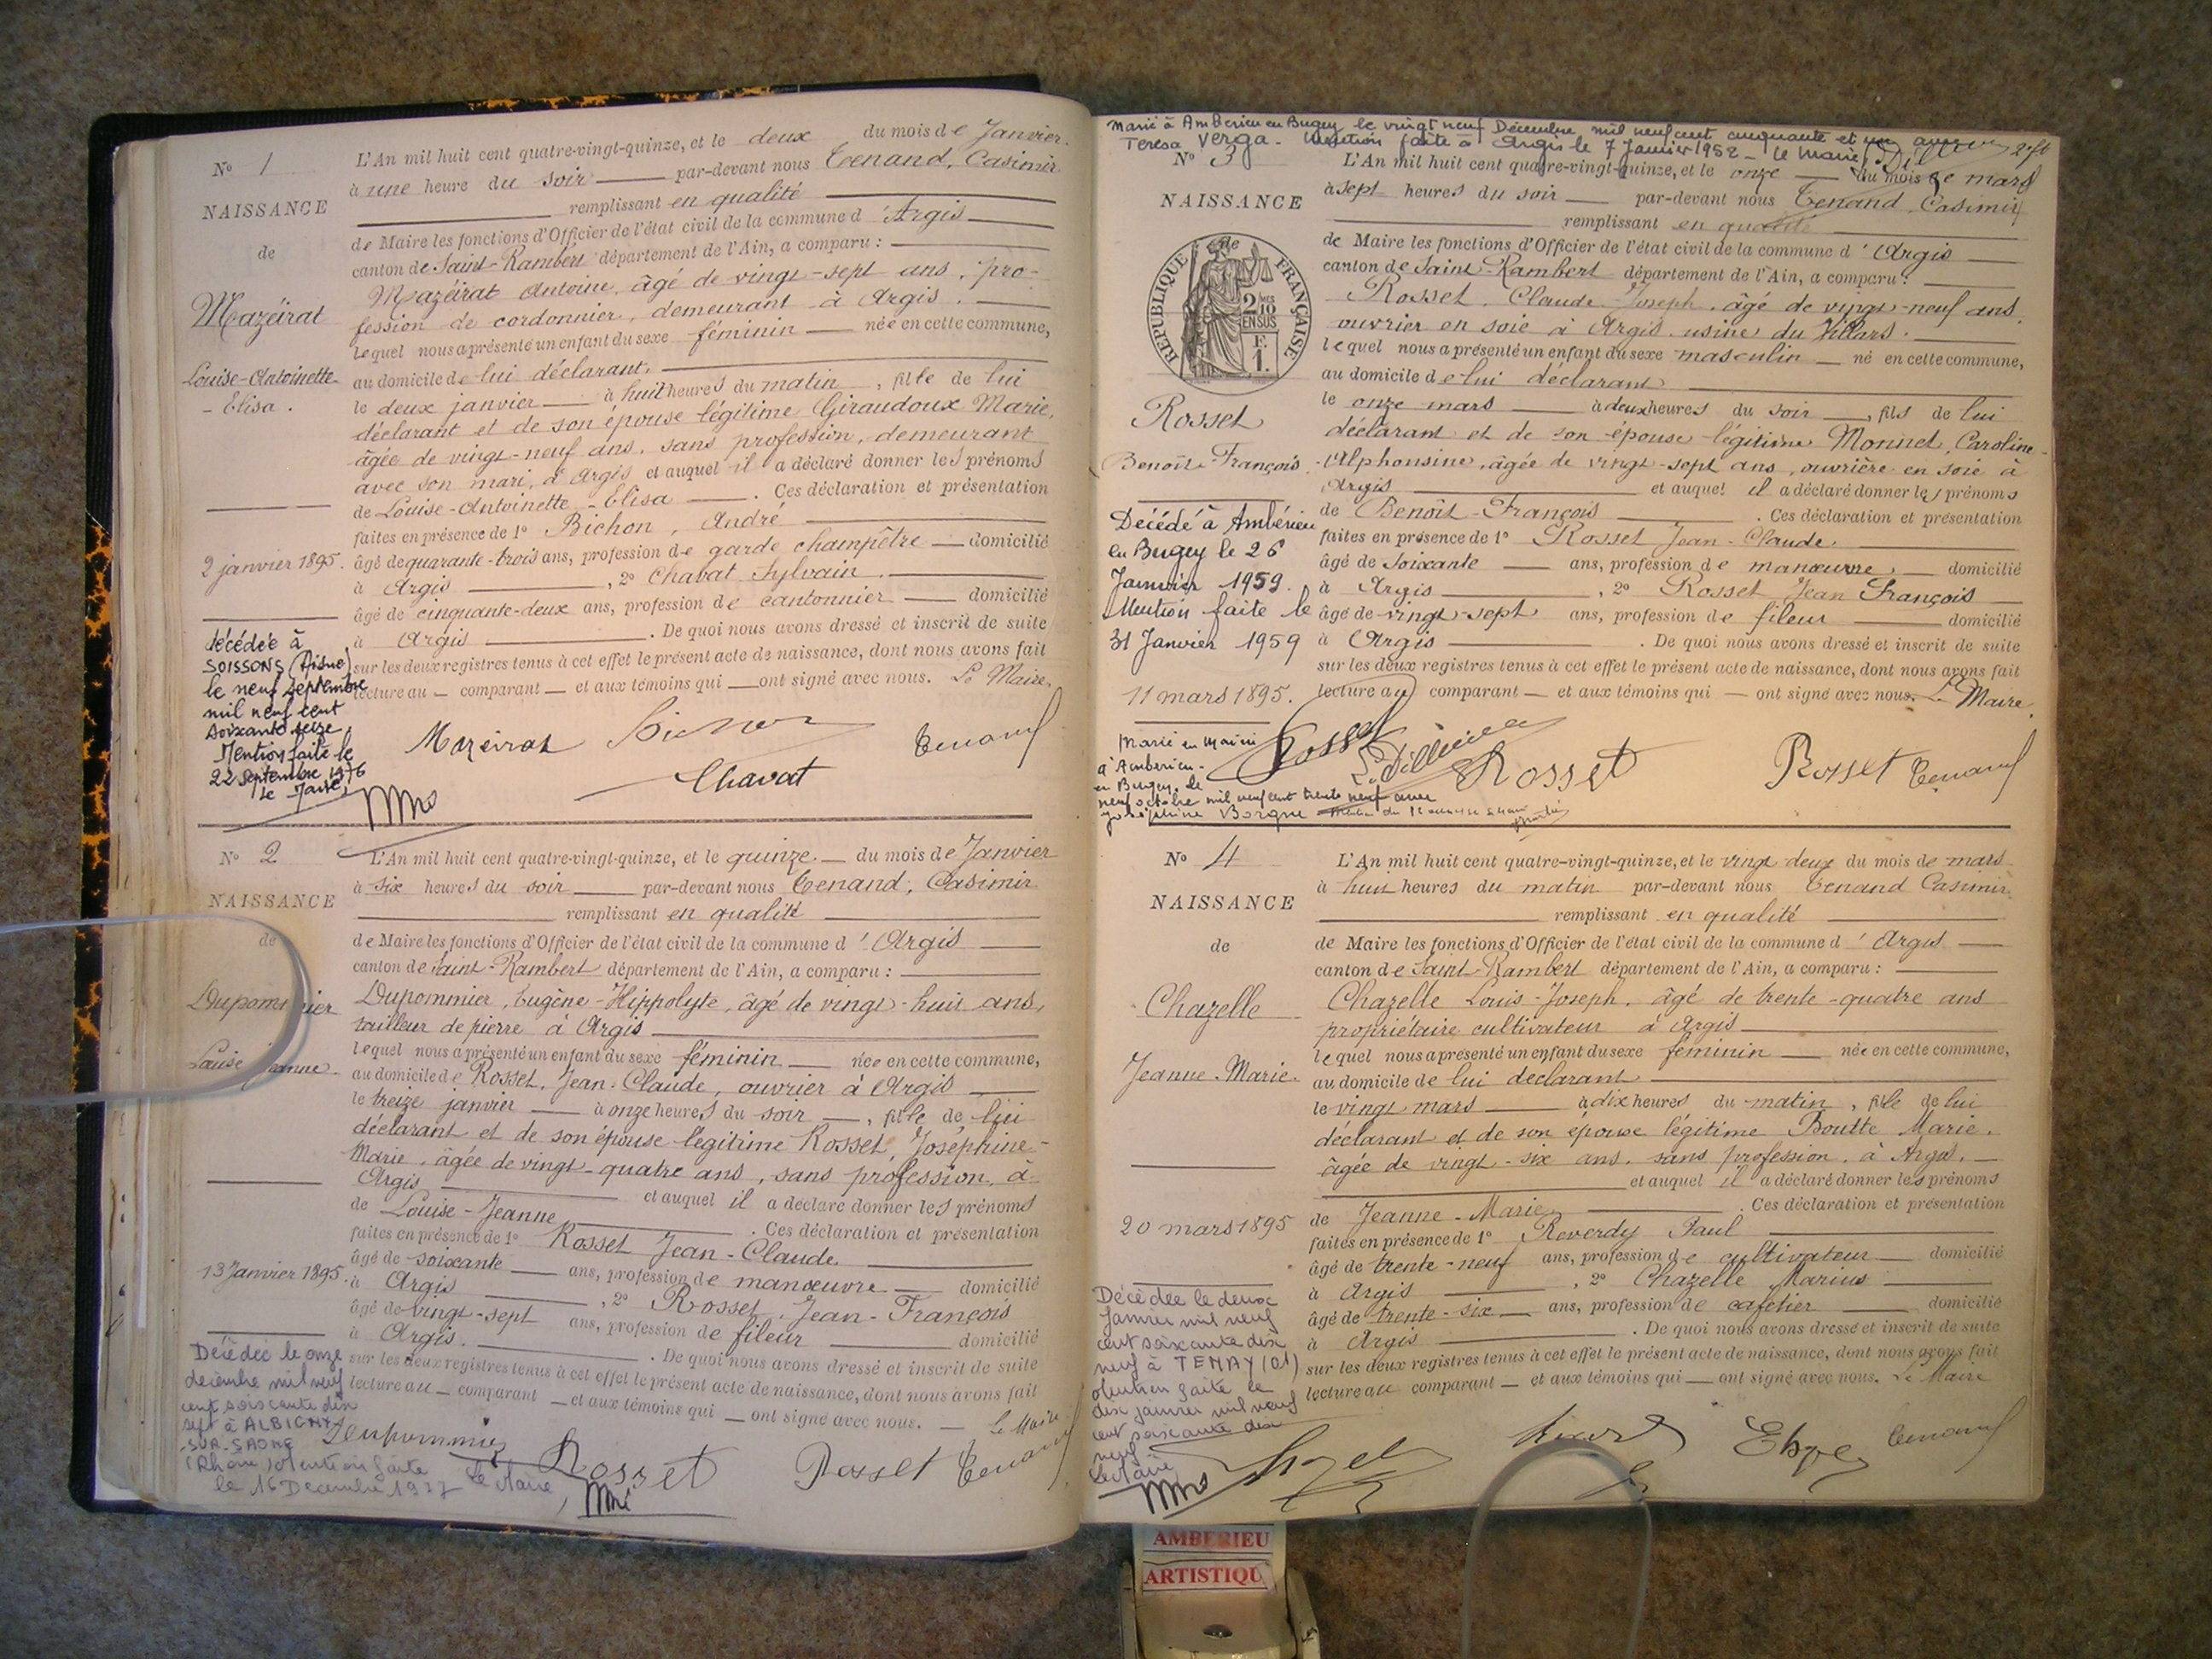 N° 1
NAISSANCE
de
Mazéirat
Louise-Antoinette-
- Elisa.
2 janvier 1895.
décédée à
SOISSONS (Aisne)
le neuf septembre
mil neuf cent
soixante seize
Mention faite le
22 septembre 1976
Le Maire,
L'An mil huit cent quatre-vingt-quinze, et le deux du mois de Janvier
à une heure du soir par-devant nous Tenand, Casimir
remplissant en qualité
de Maire les fonctions d'Officier de l'état civil de la commune d'Argis
canton de Saint-Rambert département de l'Ain, a comparu :
Mazéirat Antoine, âgé de vingt-sept ans, pro-
fession de cordonnier, demeurant à Argis.
lequel nous a présenté un enfant du sexe féminin née en cette commune,
au domicile de lui déclarant,
le deux janvier à huit heures du matin, fille de lui
déclarant et de son épouse légitime Giraudoux Marie,
âgée de vingt-neuf ans, sans profession, demeurant
avec son mari, à Argis et auquel il a déclaré donner les prénoms
de Louise-Antoinette-Elisa. Ces déclaration et présentation
faites en présence de 1° Bichon, André
âgé de quarante-trois ans, profession de garde champêtre domicilié
à Argis, 2° Chavat Sylvain
âgé de cinquante-deux ans, profession de cantonnier domicilié
à Argis. De quoi nous avons dressé et inscrit de suite
sur les deux registres tenus à cet effet le présent acte de naissance, dont nous avons fait
lecture au comparant et aux témoins qui ont signé avec nous. Le Maire,
Mazeirat Bichon Tenand
Chavat
N° 2
NAISSANCE
de
Dupommier
Louise Jeanne.
13 Janvier 1895.
Décédée le onze
décembre mil neuf
cent soixante dix
sept à ALBIGNY-
-SUR-SAONE
(Rhône) Mention faite
le 16 Décembre 1977
Le Maire,
L'An mil huit cent quatre-vingt-quinze, et le quinze du mois de Janvier
à six heures du soir par-devant nous Tenand, Casimir
remplissant en qualité
de Maire les fonctions d'Officier de l'état civil de la commune d'Argis
canton de Saint-Rambert département de l'Ain, a comparu :
Dupommier, Eugène-Hippolyte, âgé de vingt-huit ans,
tailleur de pierre à Argis
lequel nous a présenté un enfant du sexe féminin née en cette commune,
au domicile de Rosset, Jean-Claude, ouvrier à Argis
le treize janvier à onze heures du soir, fille de lui
déclarant et de son épouse légitime Rosset, Joséphine-
Marie, âgée de vingt-quatre ans, sans profession, à
Argis et auquel il a déclaré donner les prénoms
de Louise-Jeanne. Ces déclaration et présentation
faites en présence de 1° Rosset Jean-Claude
âgé de soixante ans, profession de manœuvre domicilié
à Argis, 2° Rosset, Jean-François
âgé de vingt-sept ans, profession de fileur domicilié
à Argis. De quoi nous avons dressé et inscrit de suite
sur les deux registres tenus à cet effet le présent acte de naissance, dont nous avons fait
lecture au comparant et aux témoins qui ont signé avec nous. Le Maire
Dupommier Rosset Rosset Tenand
Marié à Ambérieu en Bugey le vingt neuf Décembre mil neuf cent cinquante et un avec
Teresa Verga. Mention faite à Argis le 7 Janvier 1952 - Le Maire,
N° 3
NAISSANCE
de
RÉPUBLIQUE FRANÇAISE
2/10
EN SUS
F.
1.
Rosset
Benoît-François.
Décédé à Ambérieu
en Bugey le 26
Janvier 1959.
Mention faite le
31 Janvier 1959
11 mars 1895.
Marié en mairie
à Ambérieu-
en Bugey, le
neuf octobre mil neuf cent trente neuf avec
Joséphine Borgne
L'An mil huit cent quatre-vingt-quinze, et le onze du mois de mars
à sept heures du soir par-devant nous Tenand, Casimir
remplissant en qualité
de Maire les fonctions d'Officier de l'état civil de la commune d'Argis
canton de Saint-Rambert département de l'Ain, a comparu :
Rosset, Claude-Joseph, âgé de vingt-neuf ans,
ouvrier en soie à Argis, usine du Villars.
lequel nous a présenté un enfant du sexe masculin né en cette commune,
au domicile de lui déclarant
le onze mars à deux heures du soir, fils de lui
déclarant et de son épouse légitime Monnet, Caroline-
-Alphonsine, âgée de vingt-sept ans, ouvrière en soie à
Argis et auquel il a déclaré donner les prénoms
de Benoît-François. Ces déclaration et présentation
faites en présence de 1° Rosset Jean-Claude
âgé de soixante ans, profession de manœuvre domicilié
à Argis, 2° Rosset Jean François
âgé de vingt-sept ans, profession de fileur domicilié
à Argis. De quoi nous avons dressé et inscrit de suite
sur les deux registres tenus à cet effet le présent acte de naissance, dont nous avons fait
lecture au comparant et aux témoins qui ont signé avec nous. Le Maire.
Rosset Rosset Rosset Tenand
N° 4
NAISSANCE
de
Chazelle
Jeanne-Marie.
20 mars 1895
Décédée le deux
Janvier mil neuf
cent soixante dix
neuf à TENAY (01)
Mention faite le
dix janvier mil neuf
cent soixante dix
neuf
Le Maire
L'An mil huit cent quatre-vingt-quinze, et le vingt deux du mois de mars
à huit heures du matin par-devant nous Tenand Casimir
remplissant en qualité
de Maire les fonctions d'Officier de l'état civil de la commune d'Argis
canton de Saint-Rambert département de l'Ain, a comparu :
Chazelle Louis-Joseph, âgé de trente-quatre ans
propriétaire cultivateur à Argis
lequel nous a présenté un enfant du sexe féminin née en cette commune,
au domicile de lui déclarant
le vingt mars à dix heures du matin, fille de lui
déclarant et de son épouse légitime Boutte Marie,
âgée de vingt-six ans, sans profession, à Argis,
et auquel il a déclaré donner les prénoms
de Jeanne-Marie. Ces déclaration et présentation
faites en présence de 1° Reverdy Paul
âgé de trente-neuf ans, profession de cultivateur domicilié
à Argis, 2° Chazelle Marius
âgé de trente-six ans, profession de cafetier domicilié
à Argis. De quoi nous avons dressé et inscrit de suite
sur les deux registres tenus à cet effet le présent acte de naissance, dont nous avons fait
lecture au comparant et aux témoins qui ont signé avec nous. Le Maire
Tenand
AMBERIEU
ARTISTIQU